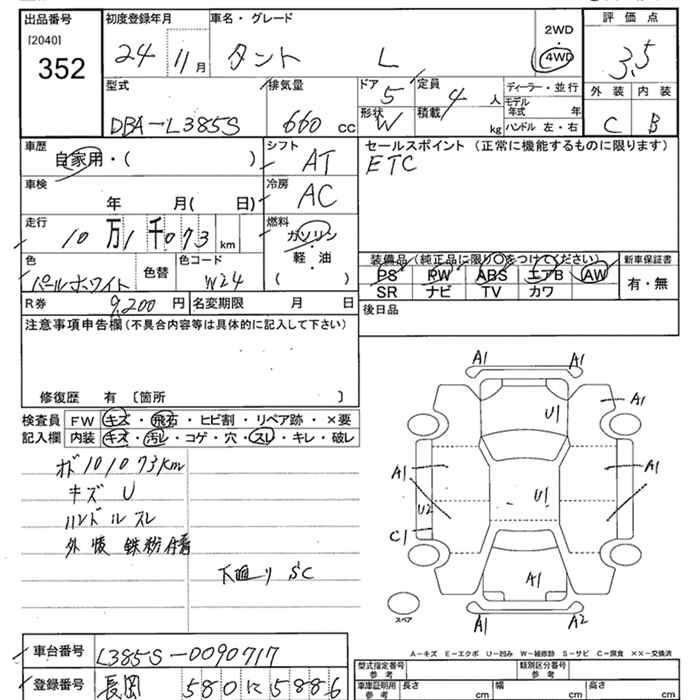 出品番号 初度登録年月 車名・グレード 2WD 評価点
[2040] 24 11月 タント L 4WD 3.5
352
型式 排気量 ドア 5 定員 4人 ディーラー・並行 外装 内装
DBA-L385S 660cc 形状 W 積載 kg モデル年式 年 C B
ハンドル 左・右
車歴 シフト セールスポイント (正常に機能するものに限ります)
自家用・( ) AT ETC
車検 冷房
年 月( 日) AC
走行 燃料
10万1千073km ガソリン・軽・油
色 色替 色コード ( ) 装備品(純正品に限り○をつけてください) 新車保証書
パールホワイト W24 PS PW ABS エアB AW 有・無
SR ナビ TV カワ
R券 9,200円 名変期限 月 日 後日品
注意事項申告欄(不具合内容等は具体的に記入して下さい)
修復歴 有 〔箇所 〕
検査員 FW キズ・飛石・ヒビ割・リペア跡・×要
記入欄 内装 キズ・汚レ・コゲ・穴・スレ・キレ・破レ
オド101073km
キズ U
ハンドルスレ
外装 鉄粉付着
下廻り SC
A1 A1
U1 A1
A1 A1
U2 U1
C1
A1
A1 A2
スペア
A-キズ E-エクボ U-凹み W-補修跡 S-サビ C-腐食 ××-交換済
車台番号 L385S-0090717
登録番号 長岡 580 に 5886
型式指定番号 参考 類別区分番号 参考
車庫証明用 参考 長さ cm 幅 cm 高さ cm